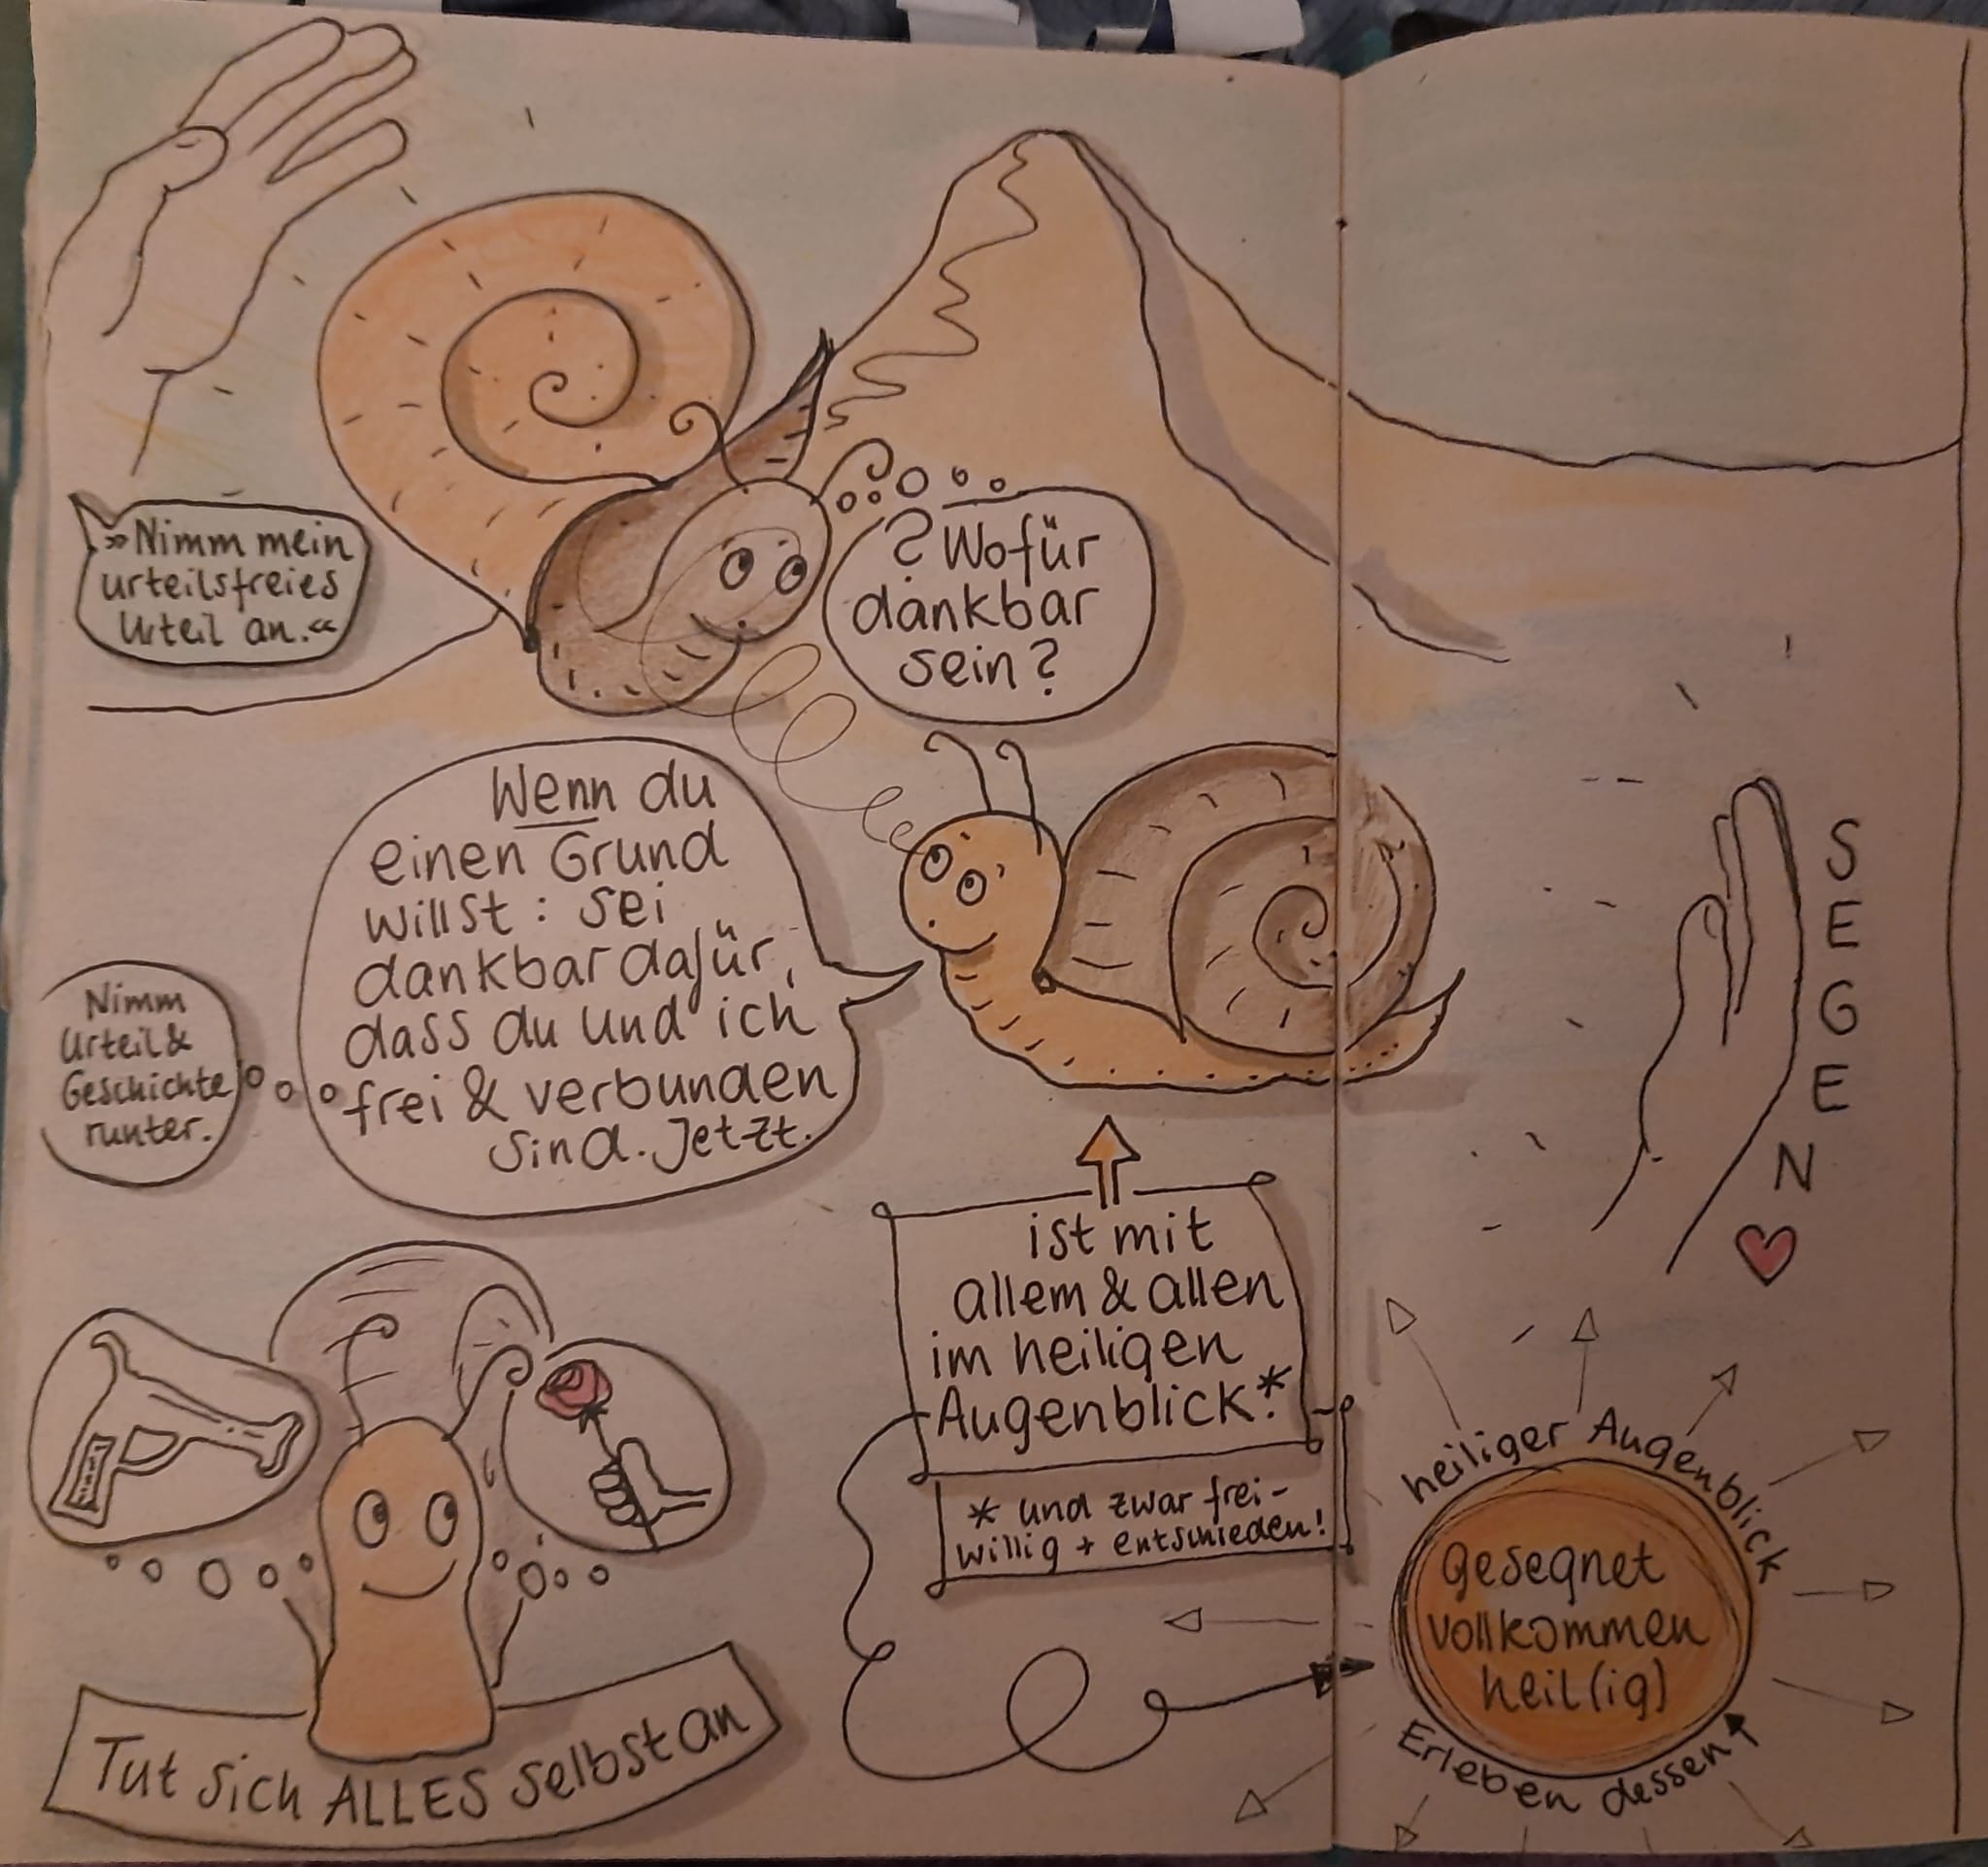 »Nimm mein
urteilsfreies
Urteil an.«
? Wofür
dankbar
sein?
Wenn du
einen Grund
willst: sei
dankbar dafür,
dass du und ich
frei & verbunden
sind. Jetzt.
Nimm
Urteil &
Geschichte
runter.
SEGEN
ist mit
allem & allen
im heiligen
Augenblick!*
* und zwar frei-
willig + entschieden!
Tut sich ALLES selbst an
heiliger Augenblick
gesegnet
vollkommen
heil(ig)
Erleben dessen